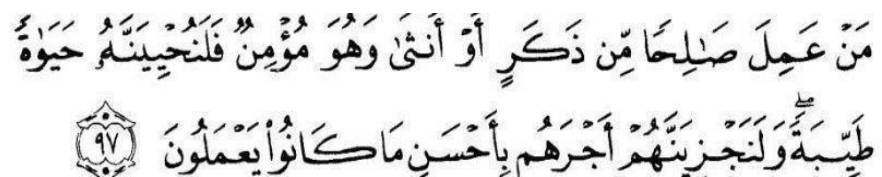 مَنْ عَمِلَ صَـٰلِحًا مِّن ذَكَرٍ أَوْ أُنثَىٰ وَهُوَ مُؤْمِنٌ فَلَنُحْيِيَنَّهُۥ حَيَوٰةً
طَيِّبَةً ۖ وَلَنَجْزِيَنَّهُمْ أَجْرَهُم بِأَحْسَنِ مَا كَانُوا۟ يَعْمَلُونَ ٩٧